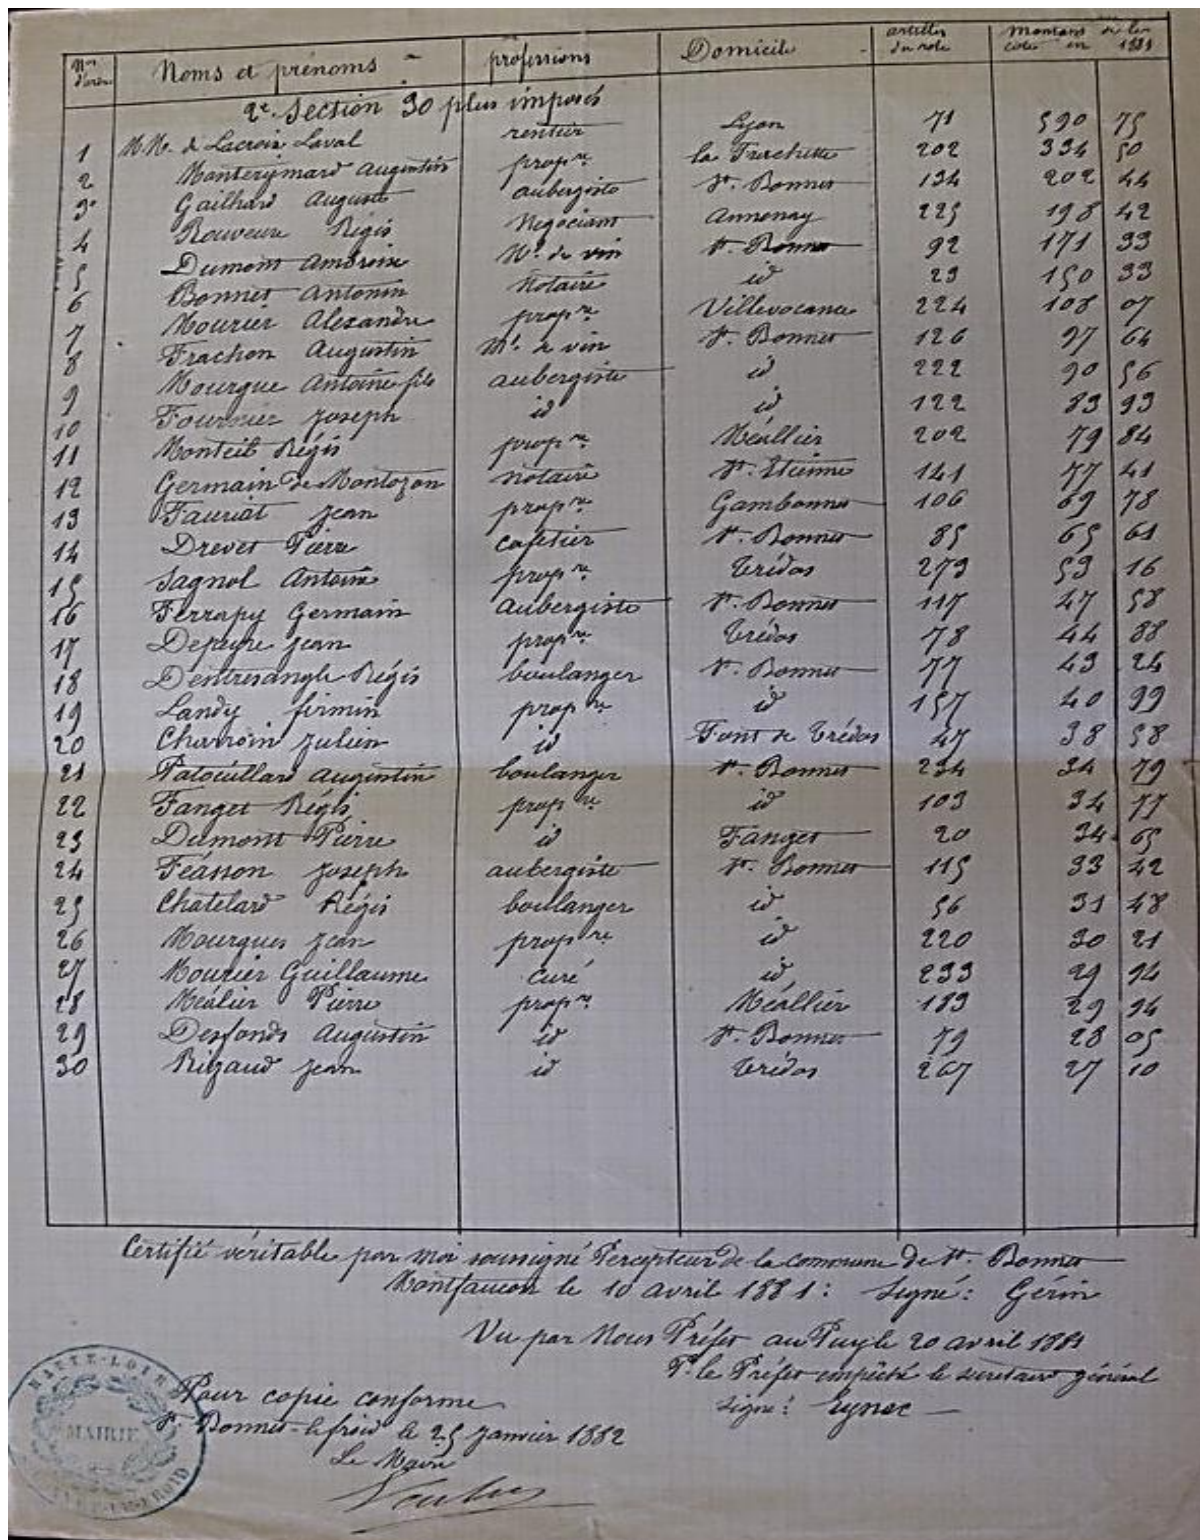 Nos d'ordre Noms et prénoms professions Domicile articles du rôle montant de leur cote en 1881
2e Section 30 plus imposés
1 M.M. de Lacroix Laval rentier Lyon 71 590 75
2 Monteymard Augustin propre la Truchette 202 334 50
3 Gailhard Auguste aubergiste St. Bonnet 134 202 44
4 Rouveure Régis Négociant Annonay 225 198 42
5 Dumont Ambroise Md. de vin St. Bonnet 92 171 33
6 Bonnet Antonin Notaire id 23 150 33
7 Mourier Alexandre propre Villevocance 224 108 07
8 Frachon Augustin Md. de vin St. Bonnet 126 97 64
9 Mourgue Antoine fils aubergiste id 222 90 56
10 Fournier Joseph id id 122 83 93
11 Monteil Régis propre Méallier 202 79 84
12 Germain de Montozon notaire St. Etienne 141 77 41
13 Fauriat Jean propre Gambonnet 106 69 78
14 Drevet Pierre cafetier St. Bonnet 85 65 61
15 Sagnol Antoine propre Trédos 273 53 16
16 Ferrapy Germain Aubergiste St. Bonnet 117 47 58
17 Depeyre Jean propre Trédos 78 44 88
18 Dentresangle Régis boulanger St. Bonnet 77 43 24
19 Landy firmin propre id 157 40 99
20 Charroin Julien id Font de Trédos 47 38 58
21 Patouillard Augustin boulanger St. Bonnet 234 34 79
22 Fanget Régis propre id 103 34 77
23 Dumont Pierre id Fanget 20 34 65
24 Féasson Joseph aubergiste St. Bonnet 115 33 42
25 Chatelard Régis boulanger id 56 31 48
26 Mourgues Jean propre id 220 30 21
27 Mourier Guillaume curé id 233 29 94
28 Méalier Pierre propre Méallier 183 29 94
29 Desfonds Augustin id St. Bonnet 79 28 05
30 Rigaud Jean id Trédos 267 27 10
Certifié véritable par moi soussigné Percepteur de la commune de St. Bonnet
Montfaucon le 10 avril 1881: Signé: Gérin
Vu par Nous Préfet au Puy le 20 avril 1881
Pr. le Préfet empêché le secrétaire général
signé: Eynac
Pour copie conforme
St. Bonnet-le froid le 25 Janvier 1882
Le Maire
HAUTE-LOIRE
MAIRIE